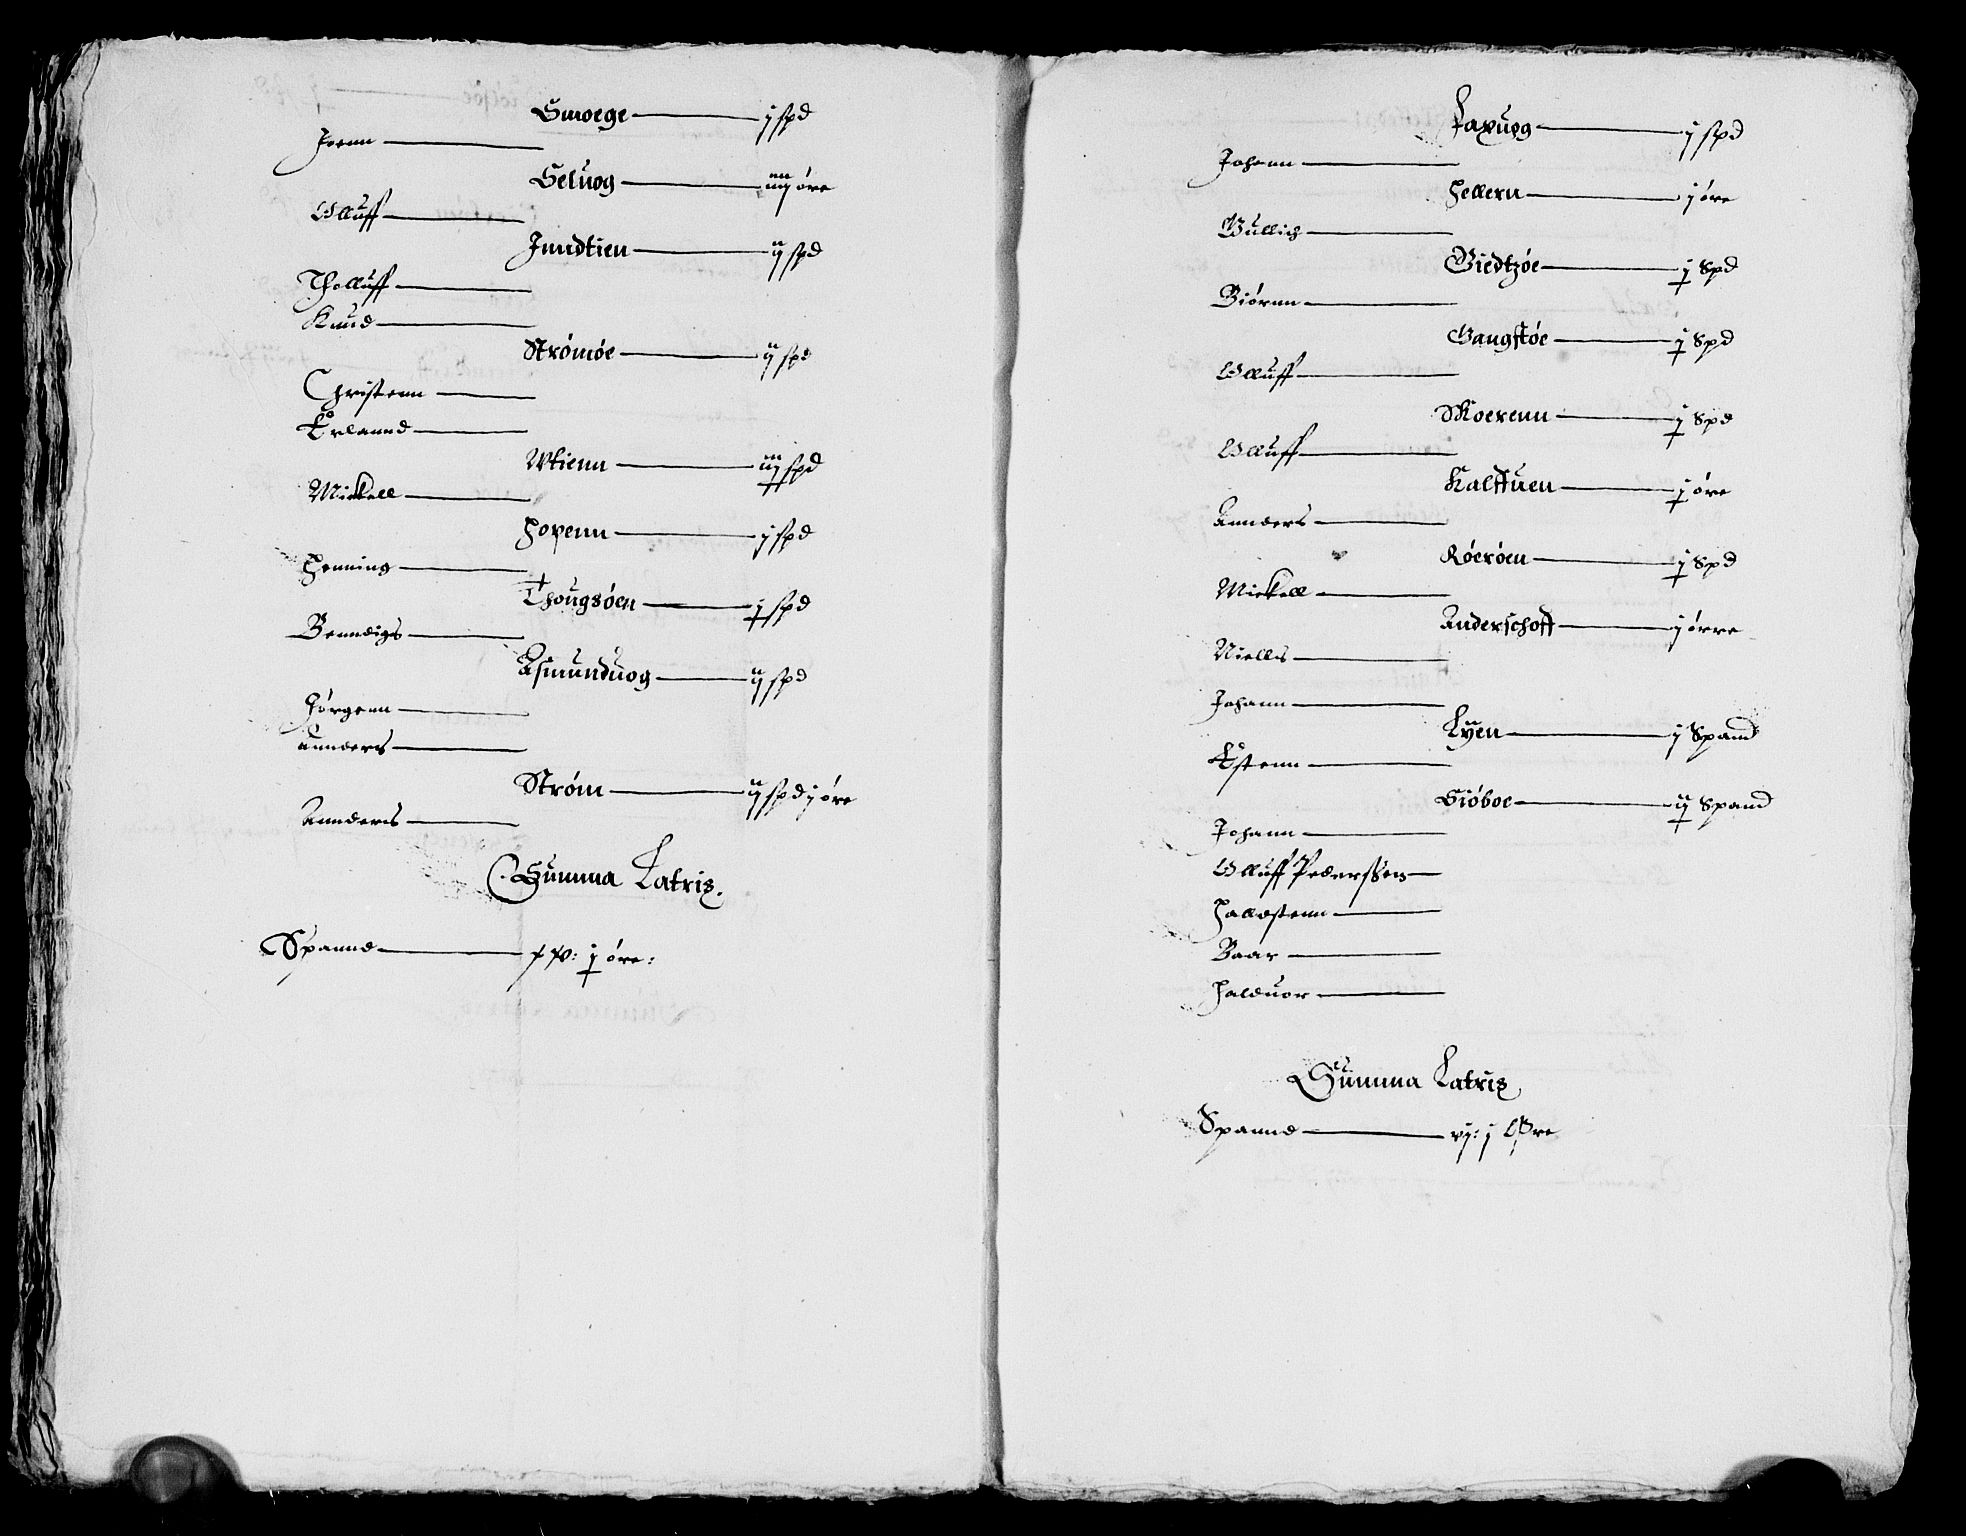 Smoege — j spd
Joenn —
Seluog — iiij øre
Olluff —
Jmdtien — ij spd
Tholluff —
Knud —
Strømøe — ij spd
Christenn —
Erlannd —
Wtienn — iij spd
Mickell —
Hopenn — j spd
Henning —
Thougsøen — j spd
Benndigs —
Asmunduog — ij spd
Jørgenn —
Annders —
Strøm — ij spd j øre
Annders —
Summa Latris.
Spannd — j øre:
Laxuog — j spd
Johann —
Hellern — j øre
Gullich —
Giedtzøe — j Spd
Biørnn —
Gangstøe — j Spd
Olluff —
Moerenn — j Spd
Olluff —
Kalffuen — j øre
Annders —
Røerøen — j Spd
Mickell —
Anderschoff — j ørre
Niells —
Johann —
Lyen — j Spand
Estenn —
Siøboe — ij Spand
Johann —
Olluff Pederssen —
Halldstenn —
Baar —
Halduor —
Summa Latris
Spannd — vj: j Øre